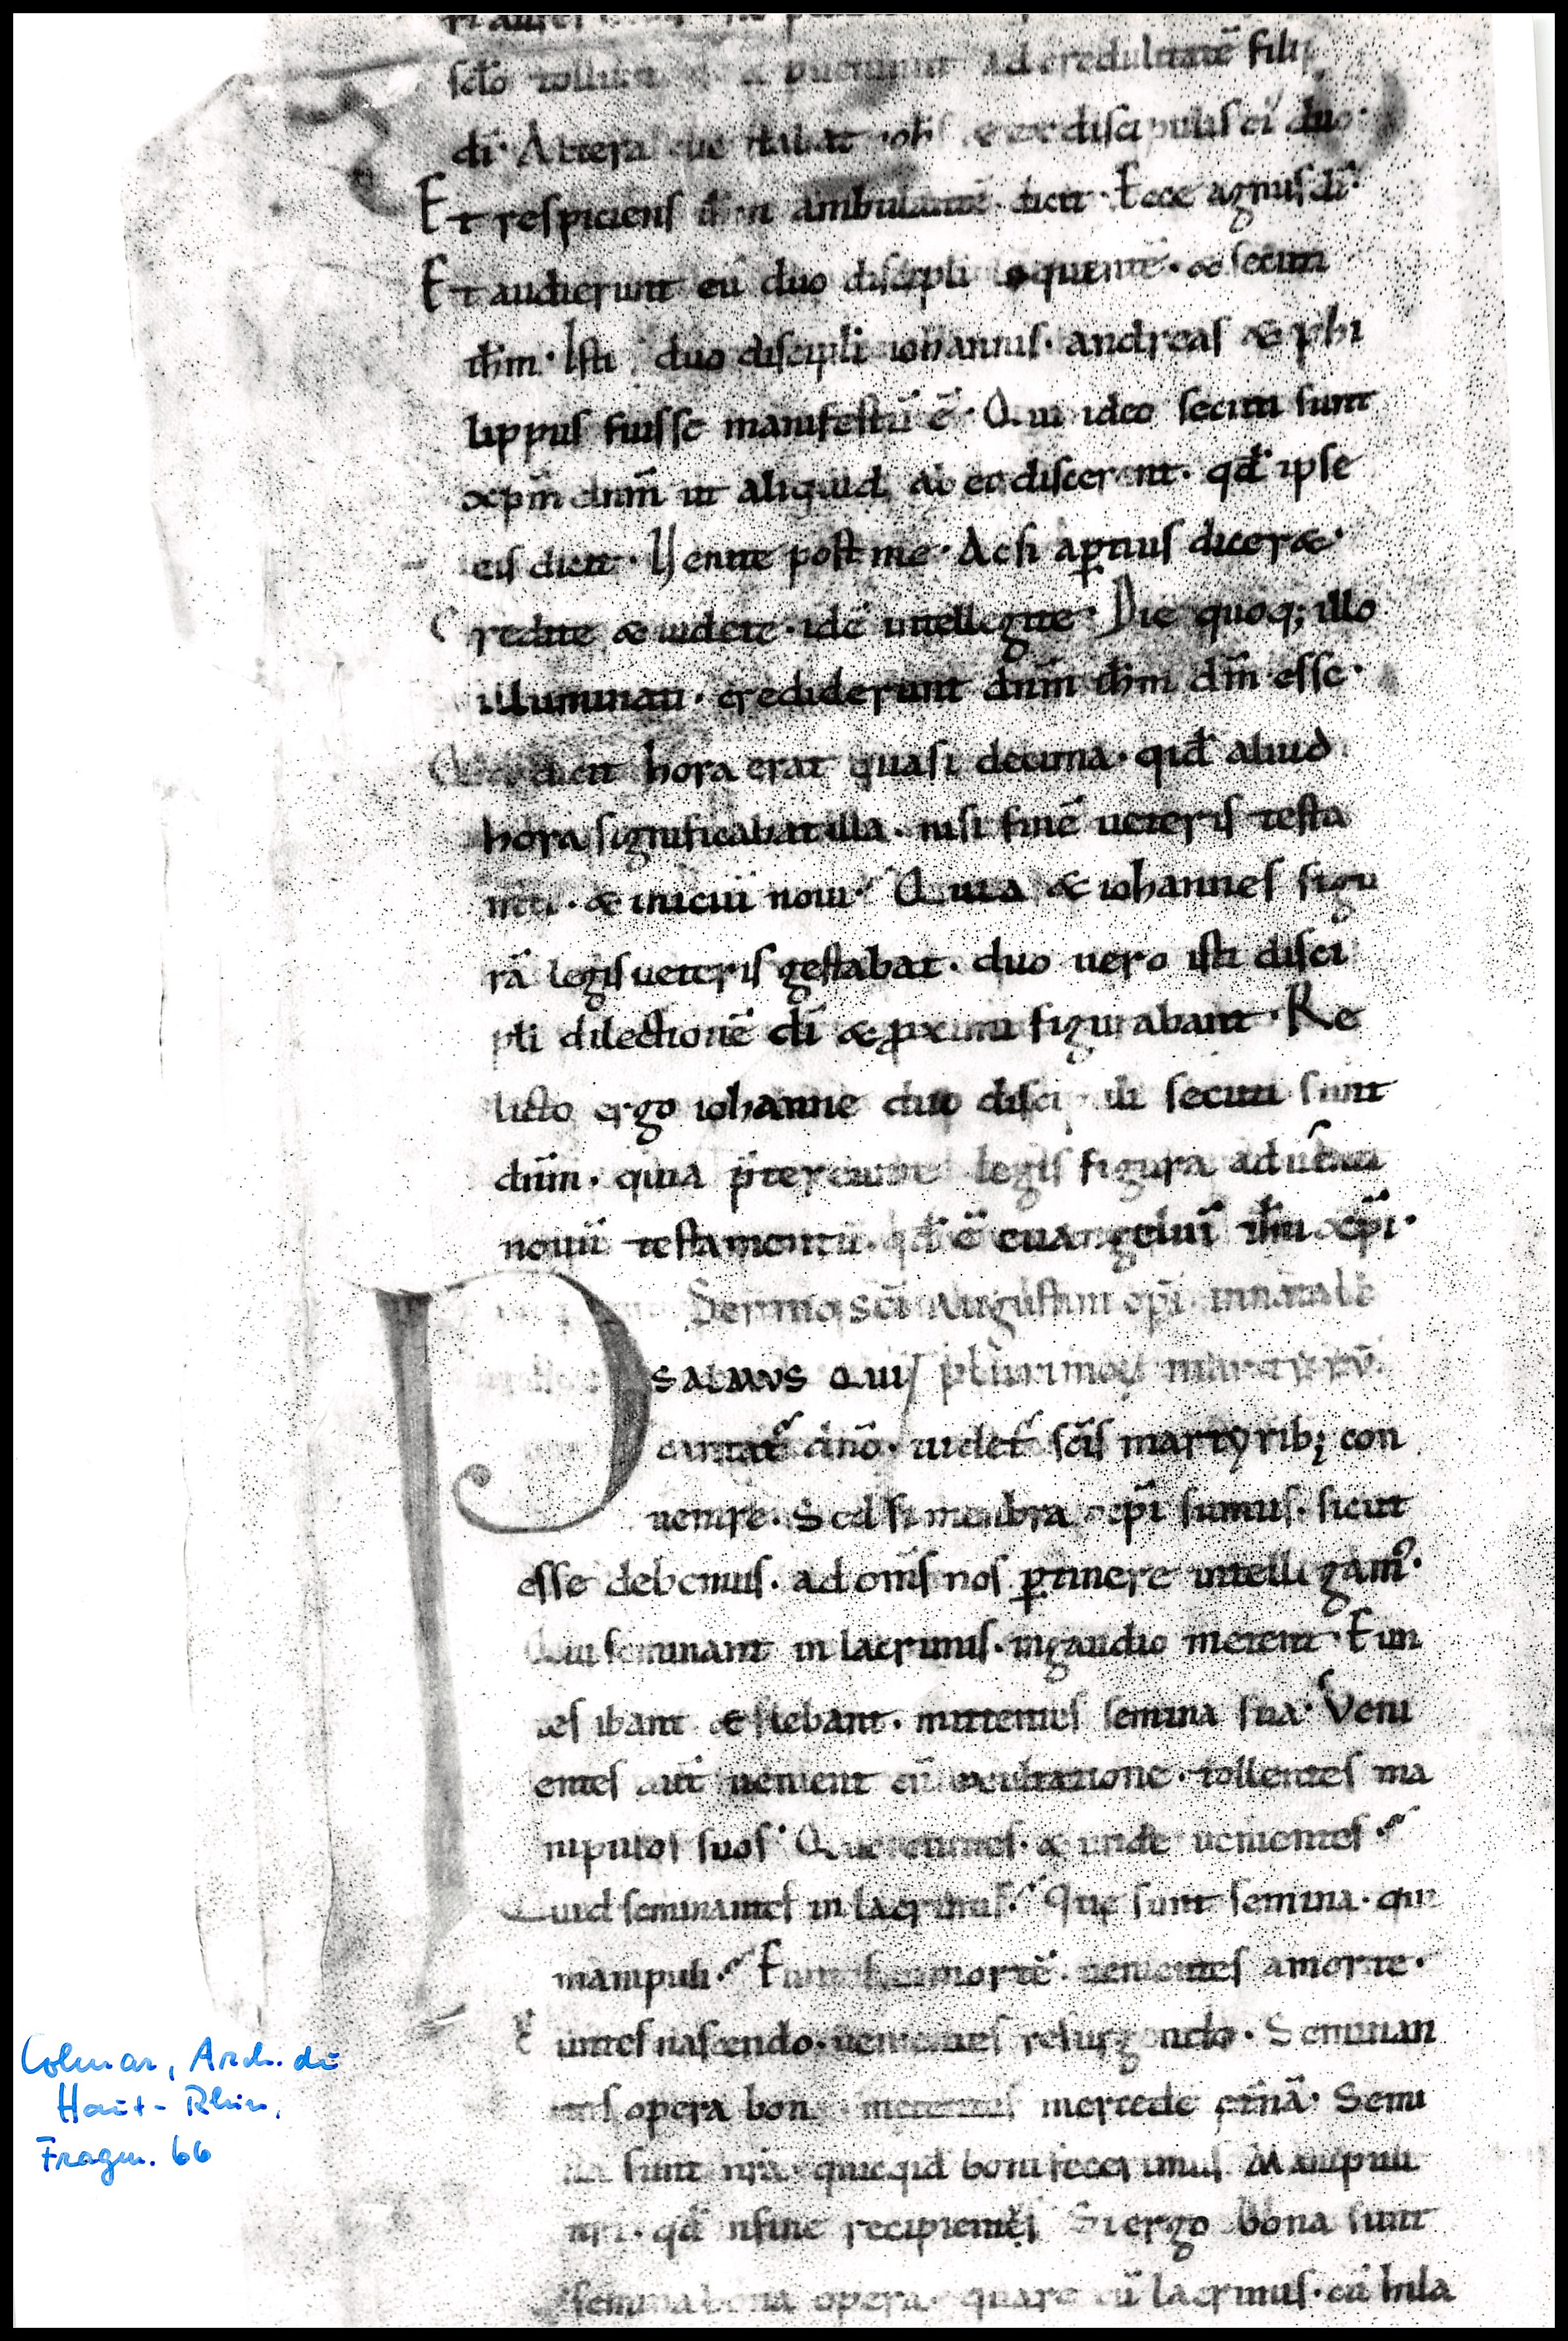 sclo ad credulitatē filij
di· Altera stabat ioħs & ex discipulis ei' duo·
Et respiciens iħm ambulantē· dicit· Ecce agnus di·
Et audierunt eū duo discipli loquentē· & secuti
iħm· Isti duo discipli iohannis· andreas & phi
lippus fuisse manifestū ē· Qui ideo secuti sunt
xpm dnm ut aliquid ab eo discerent· qđ ipse
eis dicit· Venite post me· Acsi apertius diceret·
Credite & uidete· idē intellegite· Die quoq; illo
illuminati· crediderunt dnm iħm dm esse·
dicit hora erat quasi decima· qid aliud
hora significabat illa· nisi finē ueteris testa
mti· & inicii noui? Quia & iohannes figu
rā legis ueteris gestabat· duo uero isti disci
pli dilectionē di & pximi figurabant· Re
licto ergo iohanne duo discipuli secuti sunt
dnm· quia pretereunte legis figura aduenit
nouū testamentū· qđ ē euangeliū iħu xpi·
Sermo sci Augustini epi in natale
PSALMVS QUIS plurimorum martyrū·
cantatur dno· uidetur scis martyrib; con
uenire· Sed si membra xpi sumus· sicut
esse debemus· ad oms nos ptinere intelligam'·
Qui seminant in lacrimis· in gaudio metent· Eun
tes ibant & flebant· mittentes semina sua· Veni
entes aut uenient cū exultatione· tollentes ma
nipulos suos· Quo euntes· & unde uenientes?
Quid seminantes in lacrimis? Que sunt semina· que
manipuli? Euntes in mortē· uenientes a morte·
Euntes nascendo· uenientes resurgendo· Seminan
tes opera bona· metentes mercede etnā· Semi
na sunt nra· quicqid boni fecerimus· Manipuli
nri· qđ in fine recipiemus· Si ergo bona sunt
semina bona opera· quare cū lacrimis· cū hila
Colmar, Arch. du
Haut-Rhin,
Fragm. 66